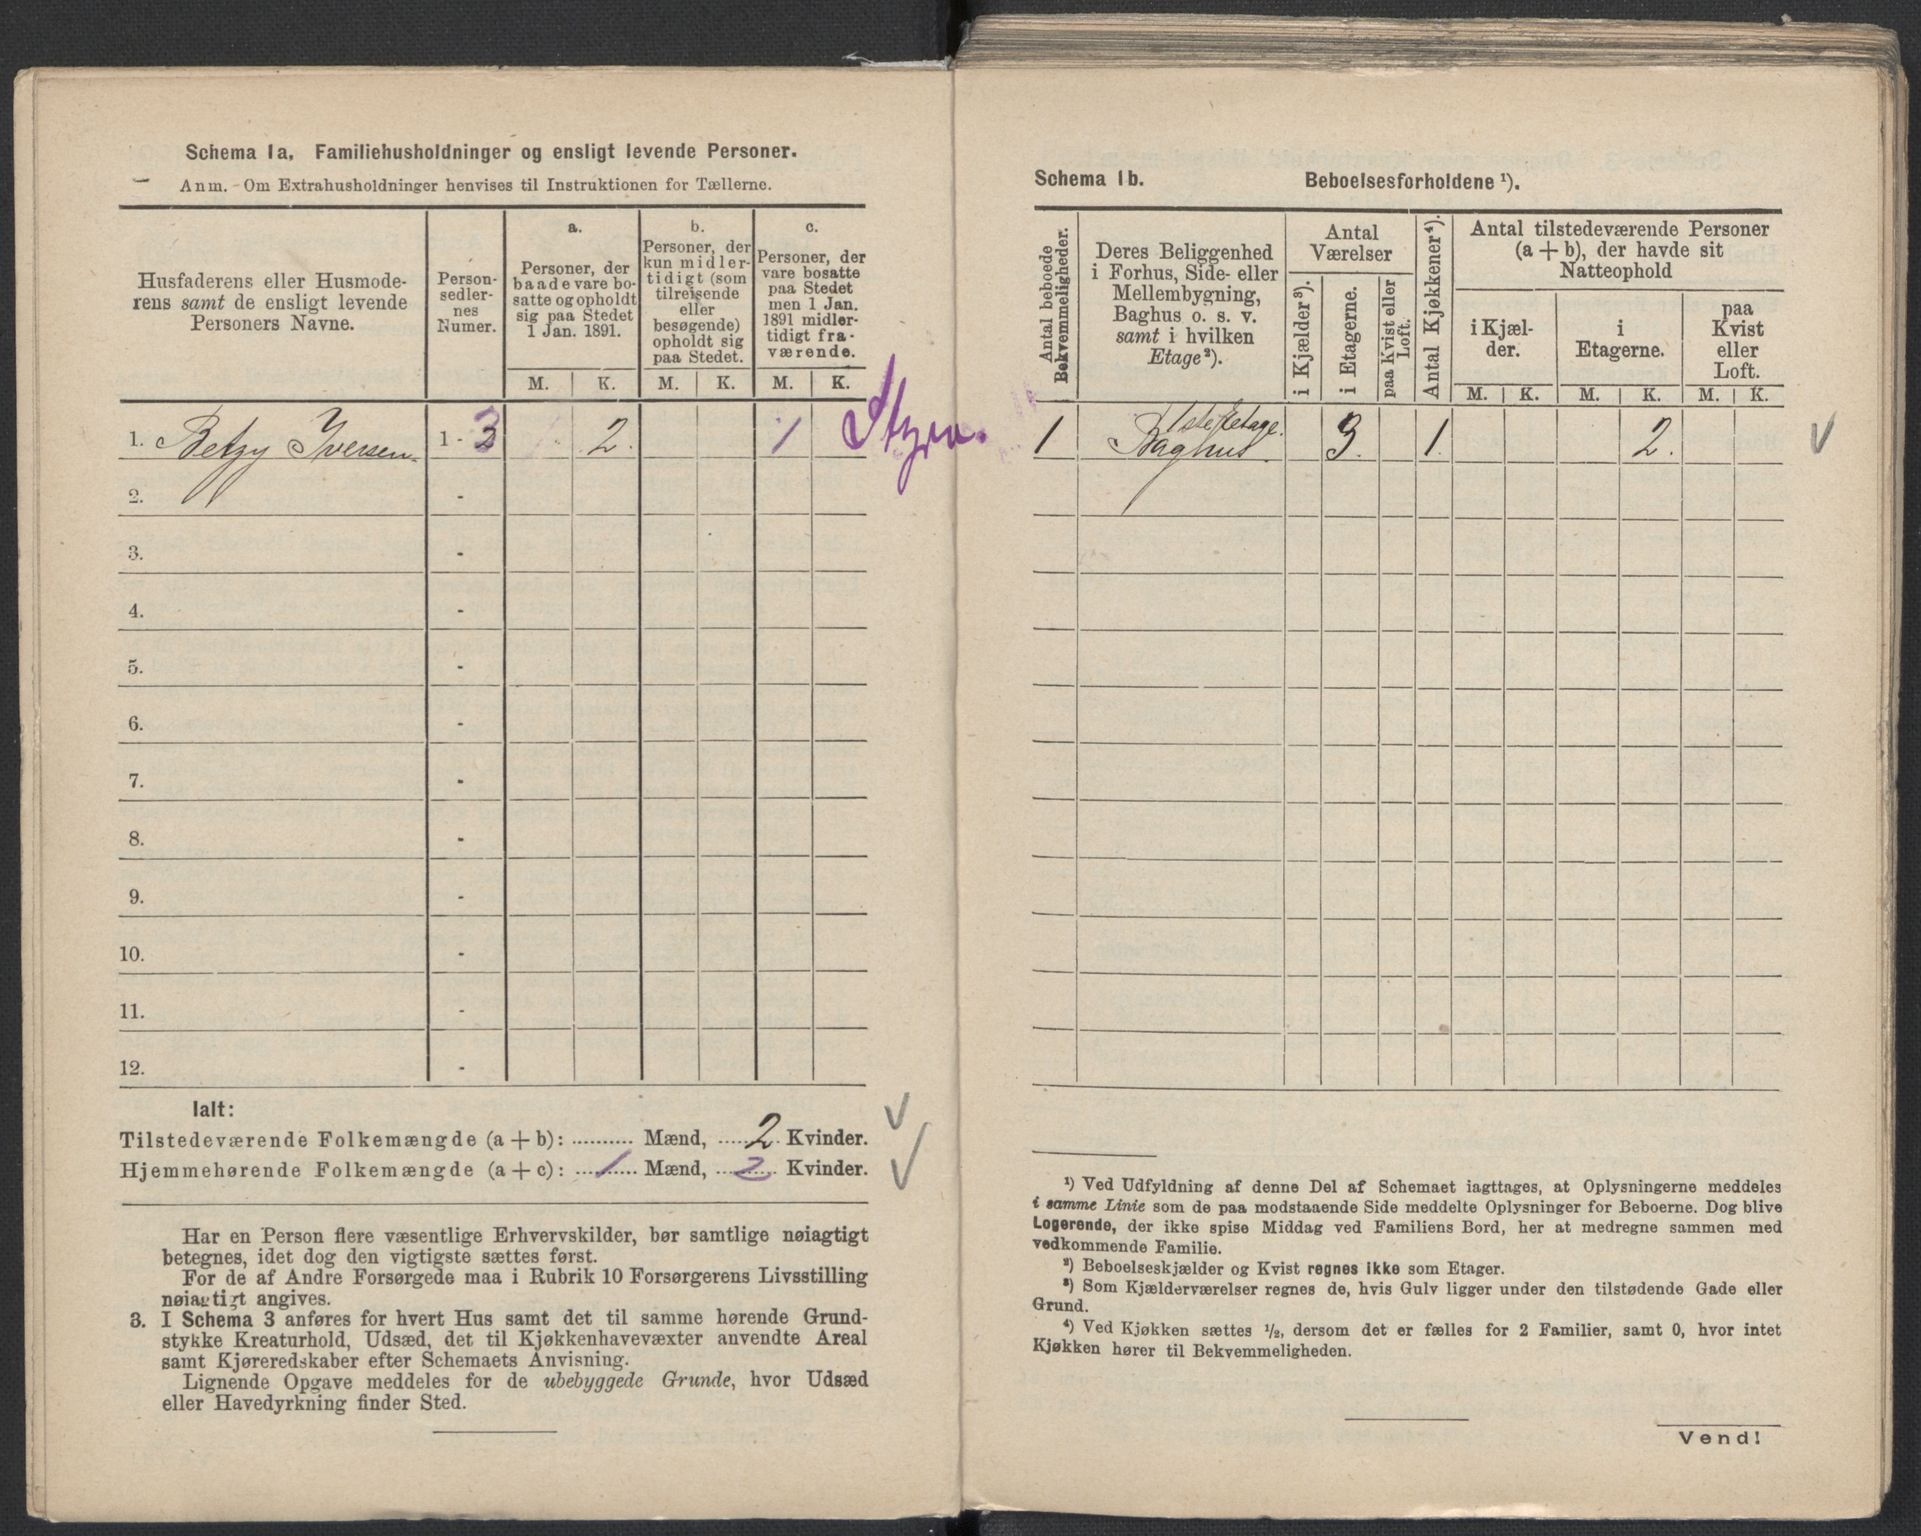 Schema 1a. Familiehusholdninger og ensligt levende Personer.
Anm. - Om Extrahusholdninger henvises til Instruktionen for Tællerne.
Husfaderens eller Husmode-
rens samt de ensligt levende
Personers Navne.
Person-
sedler-
nes
Numer.
a.
Personer, der
baade vare bo-
satte og opholdt
sig paa Stedet
1 Jan. 1891.
b.
Personer, der
kun midler-
tidigt (som
tilreisende
eller
besøgende)
opholdt sig
paa Stedet.
c.
Personer, der
vare bosatte
paa Stedet
men 1 Jan.
1891 midler-
tidigt fra-
værende.
M. K. M. K. M. K.
1. Betzy Iversen. 1 - 3 2. 1
2. -
3. -
4. -
5. -
6. -
7. -
8. -
9. -
10. -
11. -
12. -
Ialt:
Tilstedeværende Folkemængde (a + b): .......... Mænd, ...... 2 Kvinder.
Hjemmehørende Folkemængde (a + c): ... 1 ..... Mænd, ... 2 .... Kvinder.
Har en Person flere væsentlige Erhvervskilder, bør samtlige nøiagtigt
betegnes, idet dog den vigtigste sættes først.
For de af Andre Forsørgede maa i Rubrik 10 Forsørgerens Livsstilling
nøiagtigt angives.
3. I Schema 3 anføres for hvert Hus samt det til samme hørende Grund-
stykke Kreaturhold, Udsæd, det til Kjøkkenhavevæxter anvendte Areal
samt Kjøreredskaber efter Schemaets Anvisning.
Lignende Opgave meddeles for de ubebyggede Grunde, hvor Udsæd
eller Havedyrkning finder Sted.
Schema 1b. Beboelsesforholdene ¹).
Antal beboede
Bekvemmeligheder.
Deres Beliggenhed
i Forhus, Side- eller
Mellembygning,
Baghus o. s. v.
samt i hvilken
Etage²).
Antal
Værelser
i Kjælder³).
i Etagerne.
paa Kvist eller
Loft.
Antal Kjøkkener⁴).
Antal tilstedeværende Personer
(a + b), der havde sit
Natteophold
i Kjæl-
der.
i
Etagerne.
paa
Kvist
eller
Loft.
M. K. M. K. M. K.
1ste Etage.
1 Baghus. 3. 1. 2.
¹) Ved Udfyldning af denne Del af Schemaet iagttages, at Oplysningerne meddeles
i samme Linie som de paa modstaaende Side meddelte Oplysninger for Beboerne. Dog blive
Logerende, der ikke spise Middag ved Familiens Bord, her at medregne sammen med
vedkommende Familie.
²) Beboelseskjælder og Kvist regnes ikke som Etager.
³) Som Kjælderværelser regnes de, hvis Gulv ligger under den tilstødende Gade eller
Grund.
⁴) Ved Kjøkken sættes ½, dersom det er fælles for 2 Familier, samt 0, hvor intet
Kjøkken hører til Bekvemmeligheden.
Vend!